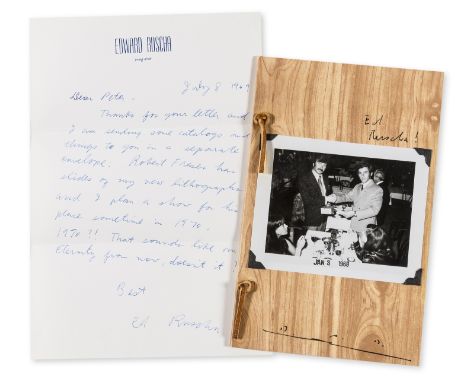 EDWARD RUSCHA
July 8 1969
Dear Peter.
Thanks for your letter and
I am sending some catalogs and
things to you in a separate
envelope. Robert Fraser has
slides of my new lithographs
and I plan a show for his
place sometime in 1970.
1970!! That sounds like an
Eternity from now, doesn't it?
Best
Ed Ruscha
Ed
Ruscha!
JAN 3 1968